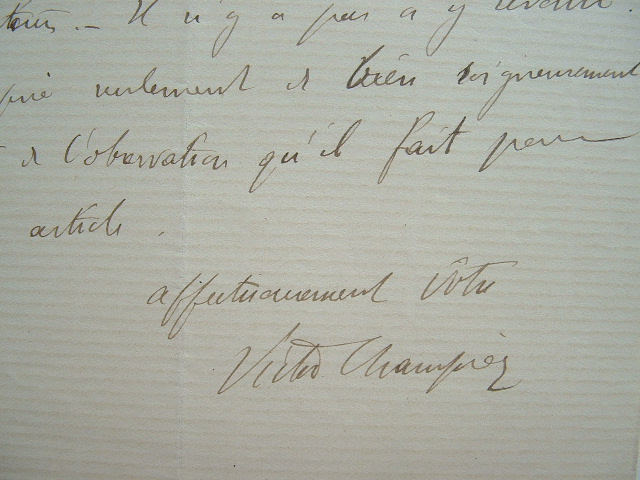 Il n'y a pas à y revenir.
prié seulement de bien soigneusement
de l'observation qu'il fait pour
article.
affectueusement vôtre
Victor Champier